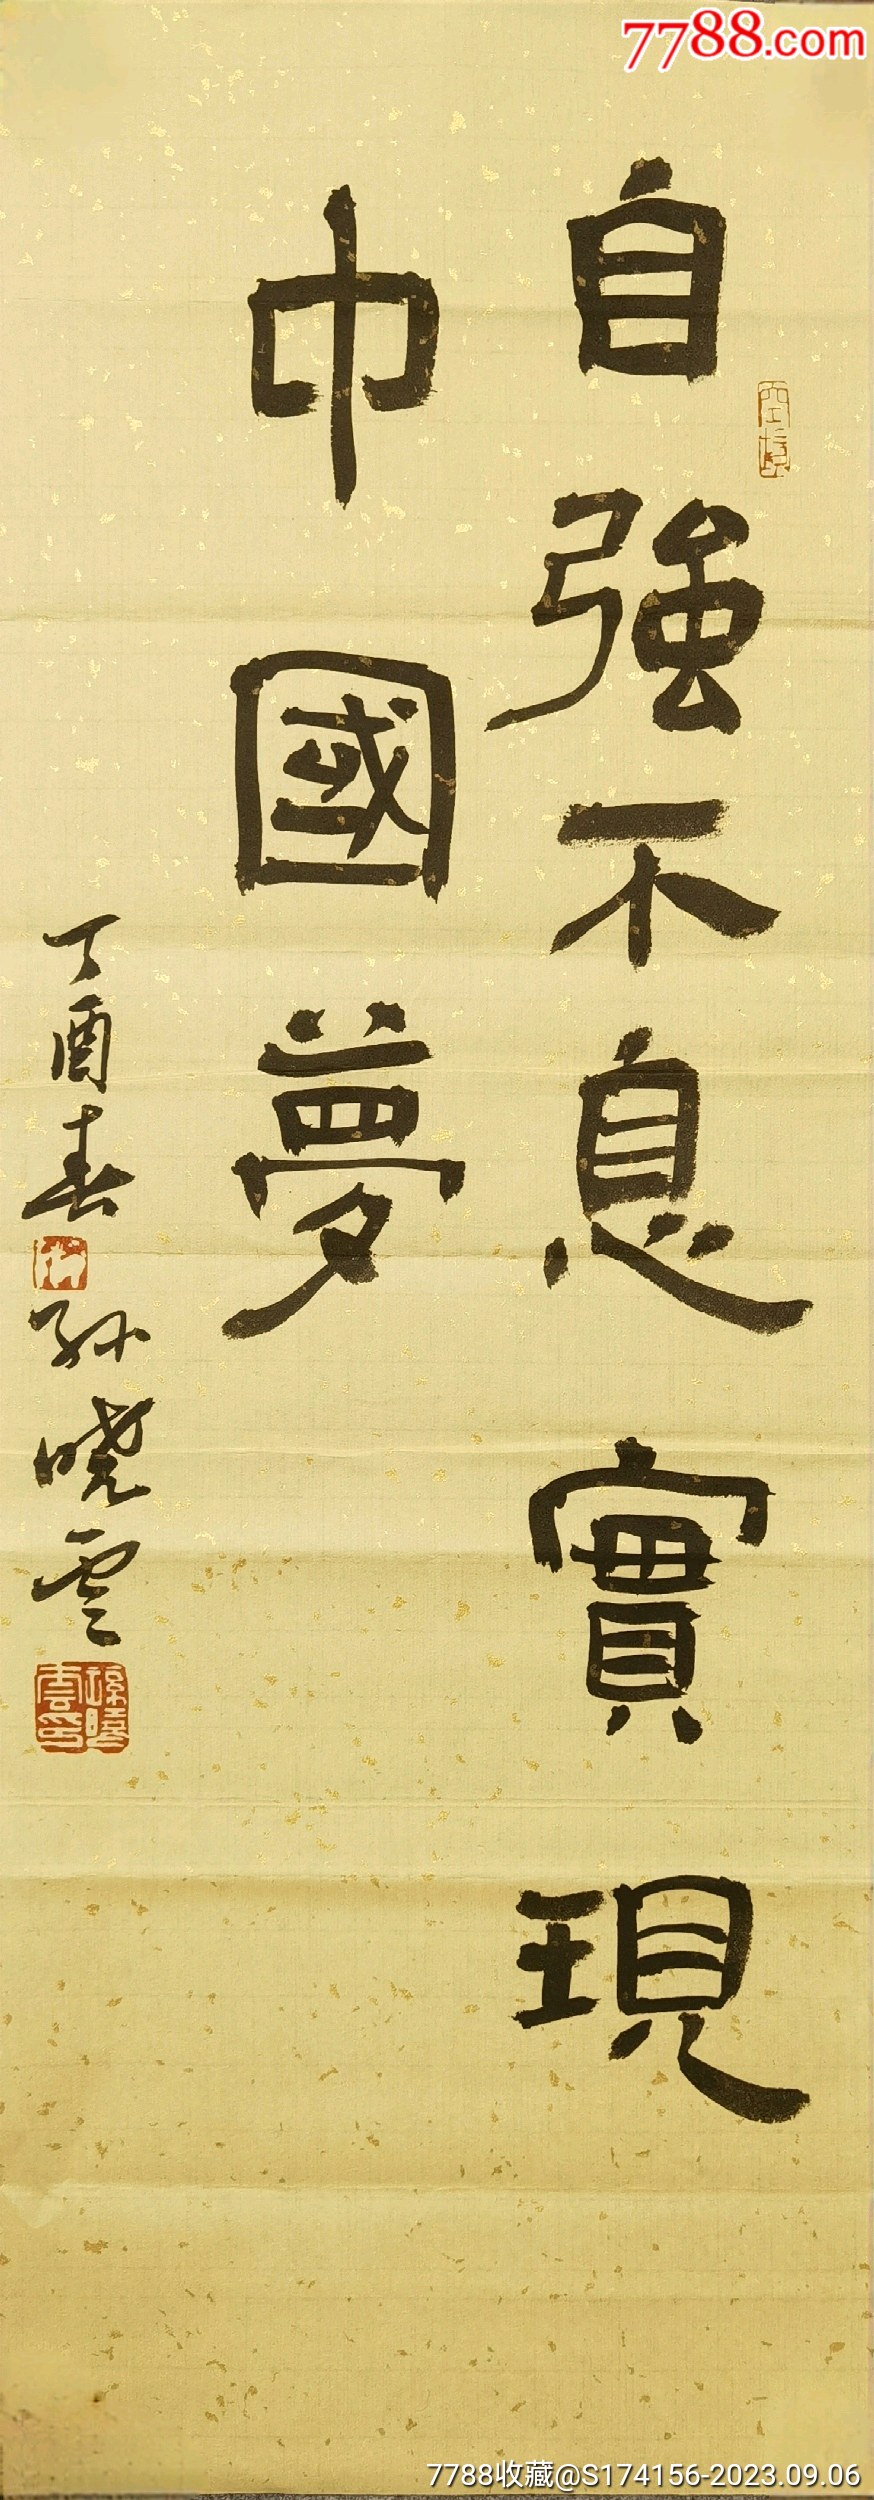 7788.com
自強不息實現
中國夢
丁酉春
孫曉雲
7788收藏@S174156-2023.09.06